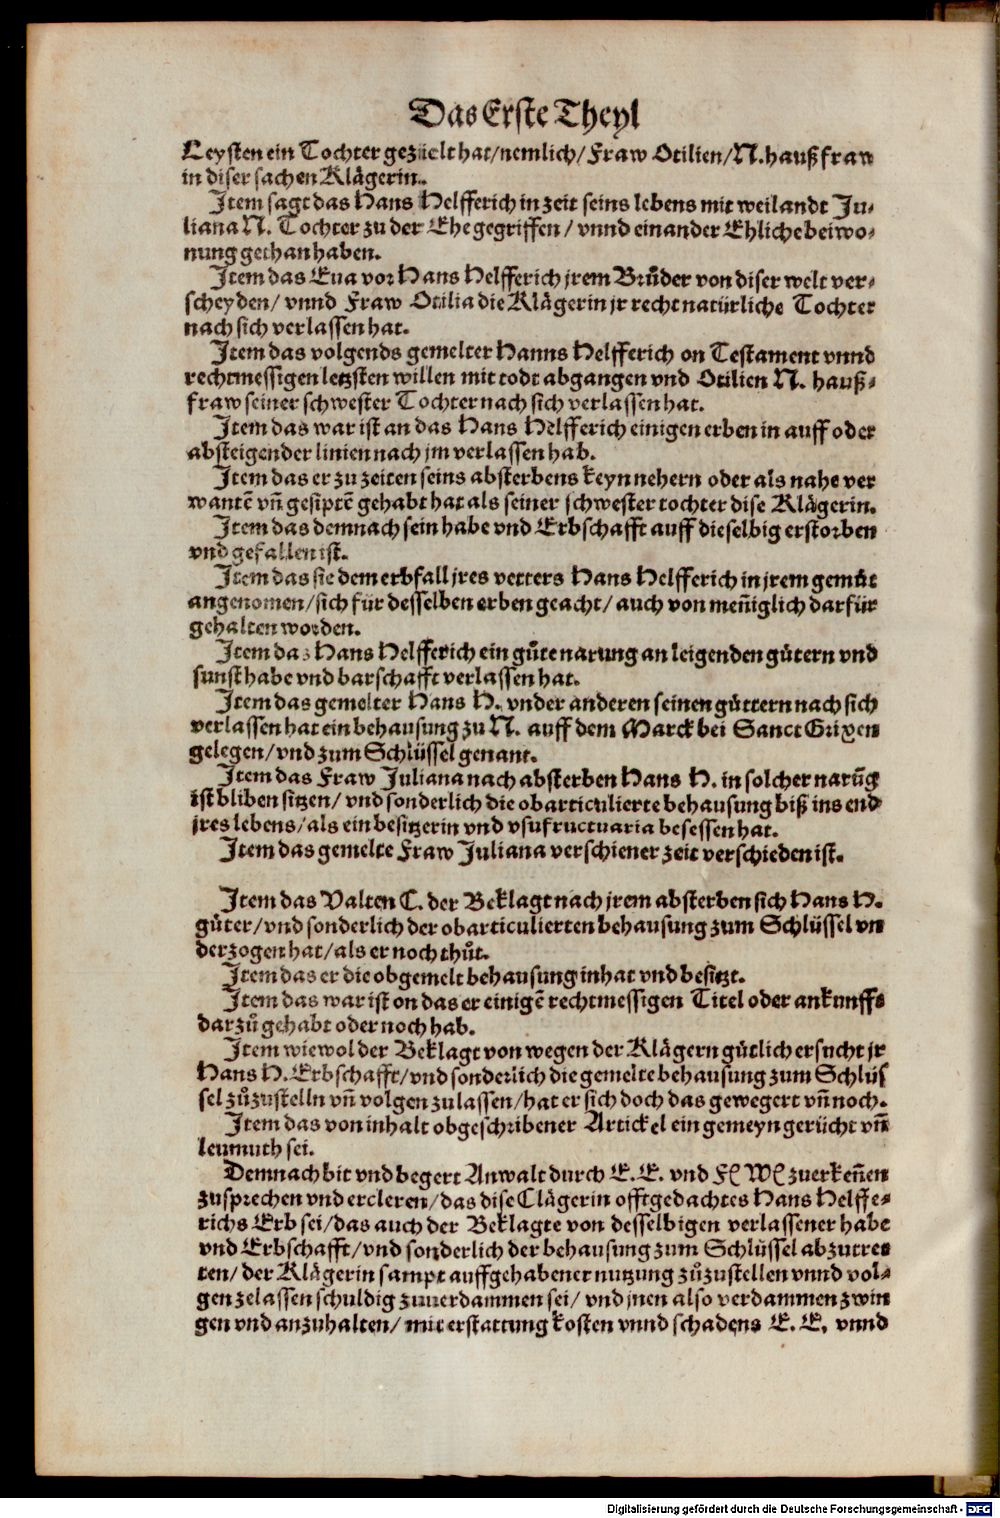 Das Erste Theyl
Leysten ein Tochter gezüelt hat/nemlich/ Fraw Otilien/N.haußfraw
in diser sachen Klägerin.
Item sagt das Hans Helfferich in zeit seins lebens mit weilandt Ju-
liana N. Tochter zu der Ehe gegriffen/ vnnd einander Ehliche beiwo-
nung gethan haben.
Item das Eua vor Hans Helfferich jrem Brůder von diser welt ver-
scheyden/ vnnd Fraw Otilia die Klägerin jr recht natürliche Tochter
nach sich verlassen hat.
Item das volgends gemelter Hanns Helfferich on Testament vnnd
rechtmessigen letzsten willen mit todt abgangen vnd Otilien N. hauß-
fraw seiner schwester Tochter nach sich verlassen hat.
Item das war ist an das Hans Helfferich einigen erben in auff oder
absteigender linien nach jm verlassen hab.
Item das er zu zeiten seins absterbens keyn nehern oder als nahe ver
wantē vn̄ gesiptē gehabt hat als seiner schwester tochter dise Klägerin.
Item das demnach sein habe vnd Erbschafft auff dieselbig erstorben
vnd gefallen ist.
Item das sie dem erbfall jres vetters Hans Helfferich in jrem gemüt
angenomen/sich für desselben erben geacht/ auch von men̄iglich darfür
gehalten worden.
Item das Hans Helfferich ein gůte narung an leigenden gütern vnd
sunst habe vnd barschafft verlassen hat.
Item das gemelter Hans H. vnder anderen seinen güttern nach sich
verlassen hat ein behausung zu N. auff dem Marck bei Sanct Grixen
gelegen/vnd zum Schlüssel genant.
Item das Fraw Juliana nach absterben Hans H. in solcher narūg
ist bliben sitzen/ vnd sonderlich die obarticulierte behausung biß ins end
jres lebens/als ein besitzerin vnd vsufructuaria besessen hat.
Item das gemelte Fraw Juliana verschiener zeit verschieden ist.
Item das Valten C. der Beklagt nach jrem absterben sich Hans H.
güter/vnd sonderlich der obarticulierten behausung zum Schlüssel vn
derzogen hat/als er noch thůt.
Item das er die obgemelt behausung inhat vnd besitzt.
Item das war ist on das er einigē rechtmessigen Titel oder ankunffs
darzů gehabt oder noch hab.
Item wiewol der Beklagt von wegen der Klägern gütlich ersucht jr
Hans H. Erbschafft/vnd sonderlich die gemelte behausung zum Schlüs
sel zůzustelln vn̄ volgen zulassen/hat er sich doch das gewegert vn̄ noch.
Item das von inhalt obgeschribener Artickel ein gemeyn gerücht vn̄
leumuth sei.
Demnach bit vnd begert Anwalt durch E. E. vnd F. W. zuerken̄en
zusprechen vnd ercleren/das dise Clägerin offtgedachtes Hans Helffe-
richs Erb sei/das auch der Beklagte von desselbigen verlassener habe
vnd Erbschafft/vnd sonderlich der behausung zum Schlüssel abzutret
ten/ der Klägerin sampt auffgehabener nutzung zůzustellen vnnd vol-
gen zelassen schuldig zuuerdammen sei/ vnd jnen also verdammen zwin
gen vnd anzuhalten/ mit erstattung kosten vnnd schadens E. E. vnnd
Digitalisierung gefördert durch die Deutsche Forschungsgemeinschaft - DFG